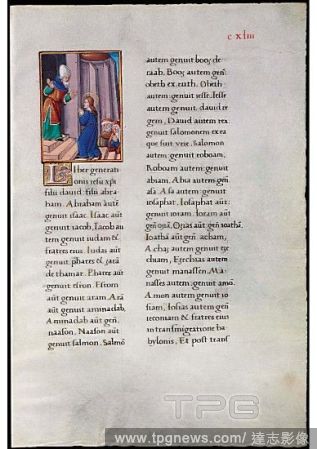 c xliii
Liber generati
onis iesu xpi
filii david filii abra
ham. Abraham autē
genuit isaac. Isaac aūt
genuit iacob, Iacob au
tem genuit iudam &
fratres eius. Iudas aūt
genuit phares & zarā
de thamar. Phares aūt
genuit esrom. Esrom
aūt genuit aram. Arā
aūt genuit aminadab,
Aminadab aūt gen̄
naason, Naason aūt
genuit salmon. Salmō
autem genuit booz de
raab. Booz autem gen̄
obeth ex ruth. Obeth
autem genuit iesse. Iesse
autem genuit david re
gem, David autem rex
genuit salomonem ex ea
que fuit urie. Salomon
autem genuit roboam,
Roboam autem genuit
abiam. Abia autem gen̄
asa. Asa autem genuit
iosaphat. Iosaphat aūt
genuit ioram. Ioram aūt
gen̄ oziā. Ozias aūt gen̄ ioathā.
Ioathā aūt gen̄ acham,
Achaz autem genuit eze
chiam, Ezechias autem
genuit manassen. Ma
nasses autem genuit amō.
Amon autem genuit io
siam, Iosias autem gen̄
ieconiam & fratres eius
in transmigratione ba
bylonis, Et post trans
TPG
www.tpgnews.com/達志影像